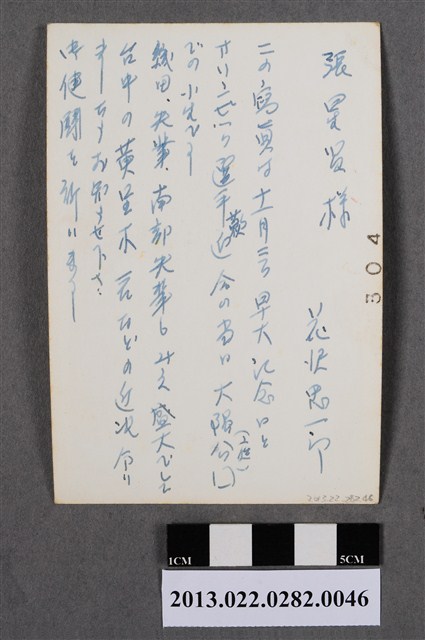 張星賢様
花沢忠一郎
この寫真は十一月三日早大記念日と
オリンピック選手歓迎会の当日大隈会(工欣)
での小生です
織田、先輩、南部先輩もみえ盛大でした
台中の黄呈木君などの近況分り
ましたらお知らせ下さい
御健闘を祈ります
304
2013.022.0282.0046
1CM
5CM
2013.022.0282.0046